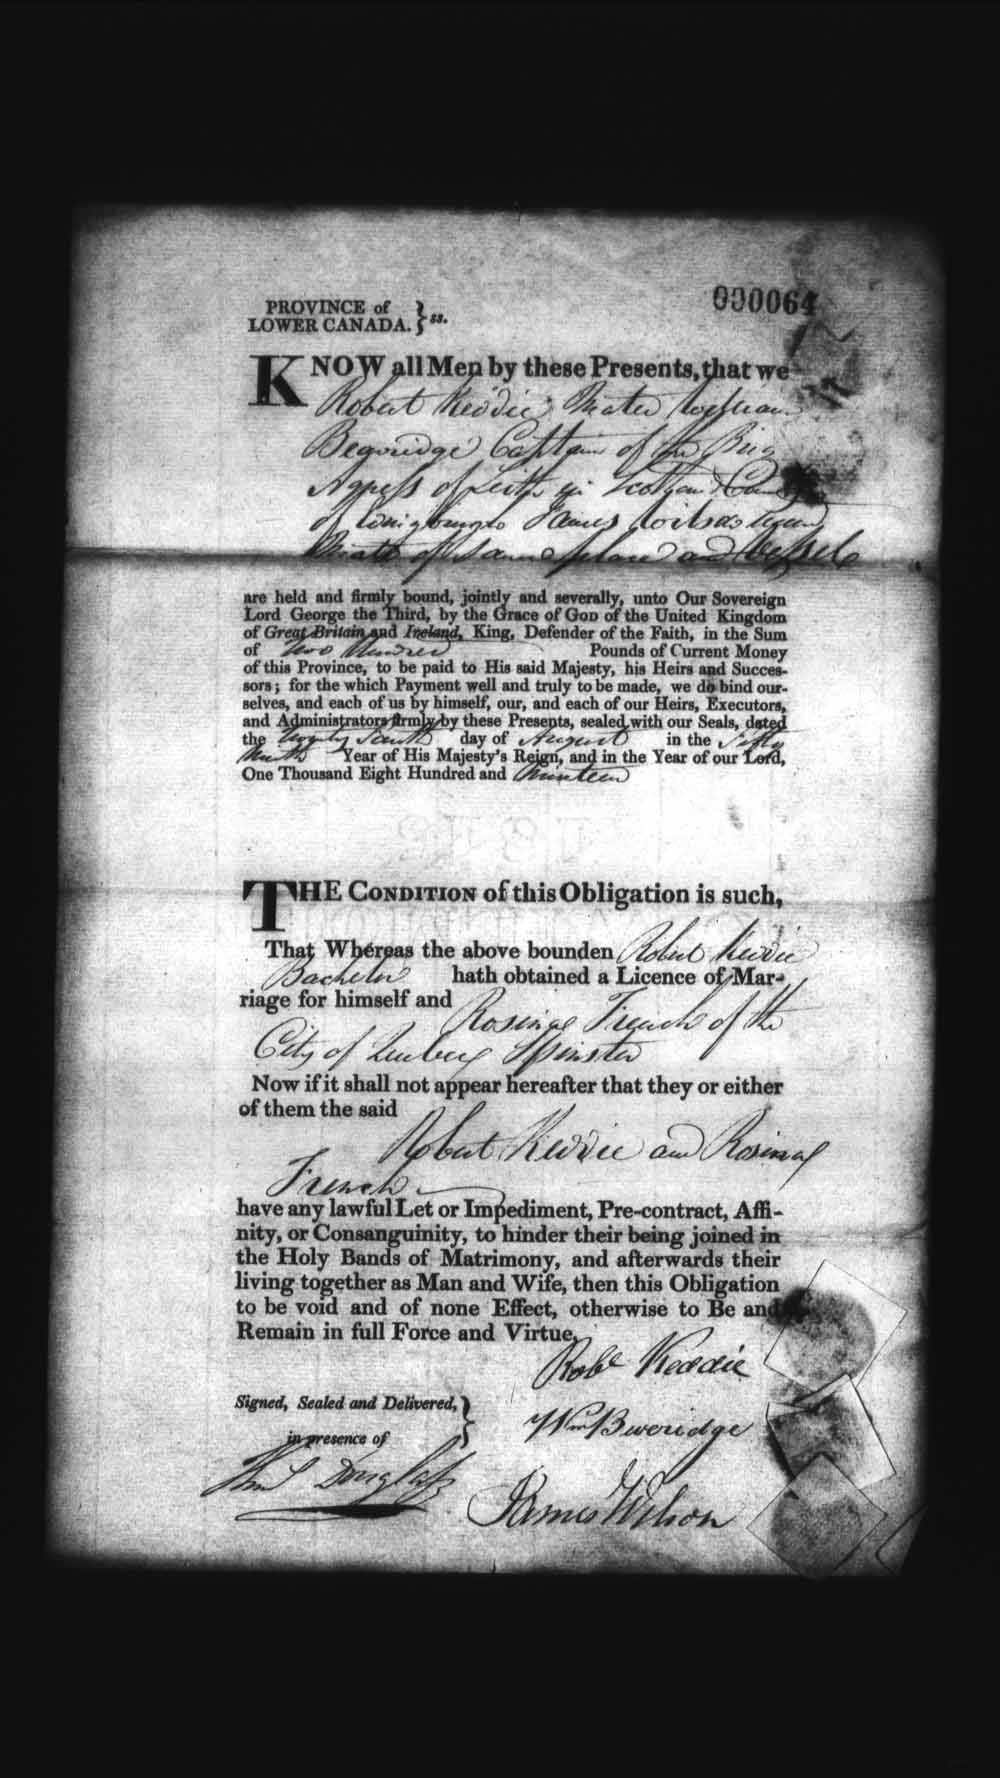 000064
PROVINCE of
LOWER CANADA. } ss.
KNOW all Men by these Presents, that we
Robert Keddie Mater William
Beveridge Captain of the Brig
Agness of Leith in Scotland
James Wilson
Mate of Same place and Vessele
are held and firmly bound, jointly and severally, unto Our Sovereign
Lord George the Third, by the Grace of GOD of the United Kingdom
of Great Britain and Ireland, King, Defender of the Faith, in the Sum
of Two Hundred Pounds of Current Money
of this Province, to be paid to His said Majesty, his Heirs and Succes-
sors; for the which Payment well and truly to be made, we do bind our-
selves, and each of us by himself, our, and each of our Heirs, Executors,
and Administrators firmly by these Presents, sealed with our Seals, dated
the day of August in the Fifty
Ninth Year of His Majesty's Reign, and in the Year of our Lord,
One Thousand Eight Hundred and Nineteen
THE CONDITION of this Obligation is such,
That Whereas the above bounden Robert Keddie
Bachelor hath obtained a Licence of Mar-
riage for himself and
Rosinae French of the
City of Quebec Spinster
Now if it shall not appear hereafter that they or either
of them the said
Robert Keddie and Rosinae
French
have any lawful Let or Impediment, Pre-contract, Affi-
nity, or Consanguinity, to hinder their being joined in
the Holy Bands of Matrimony, and afterwards their
living together as Man and Wife, then this Obligation
to be void and of none Effect, otherwise to Be and
Remain in full Force and Virtue.
Robt Keddie
Signed, Sealed and Delivered,
in presence of
Wm Beveridge
Douglass
James Wilson